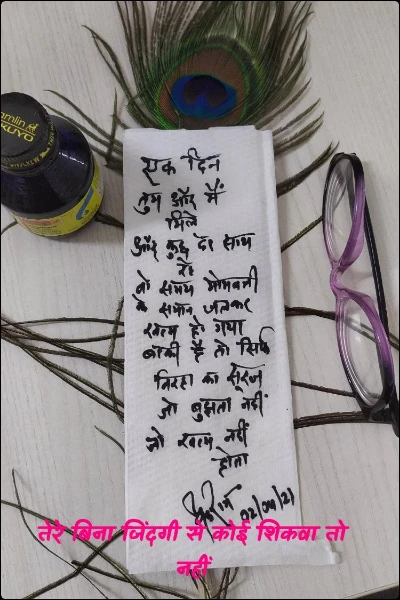 omlin
KURUYO
एक दिन
तुम और मैं
मिले
और कुछ देर साथ
रहे
वो समय मोमबत्ती
के समान जलकर
खत्म हो गया
बाकी है तो सिर्फ
विरहा का सूरज
जो बुझता नहीं
जो खत्म नहीं
होता
02/04/21
तेरे बिना जिंदगी से कोई शिकवा तो
नहीं